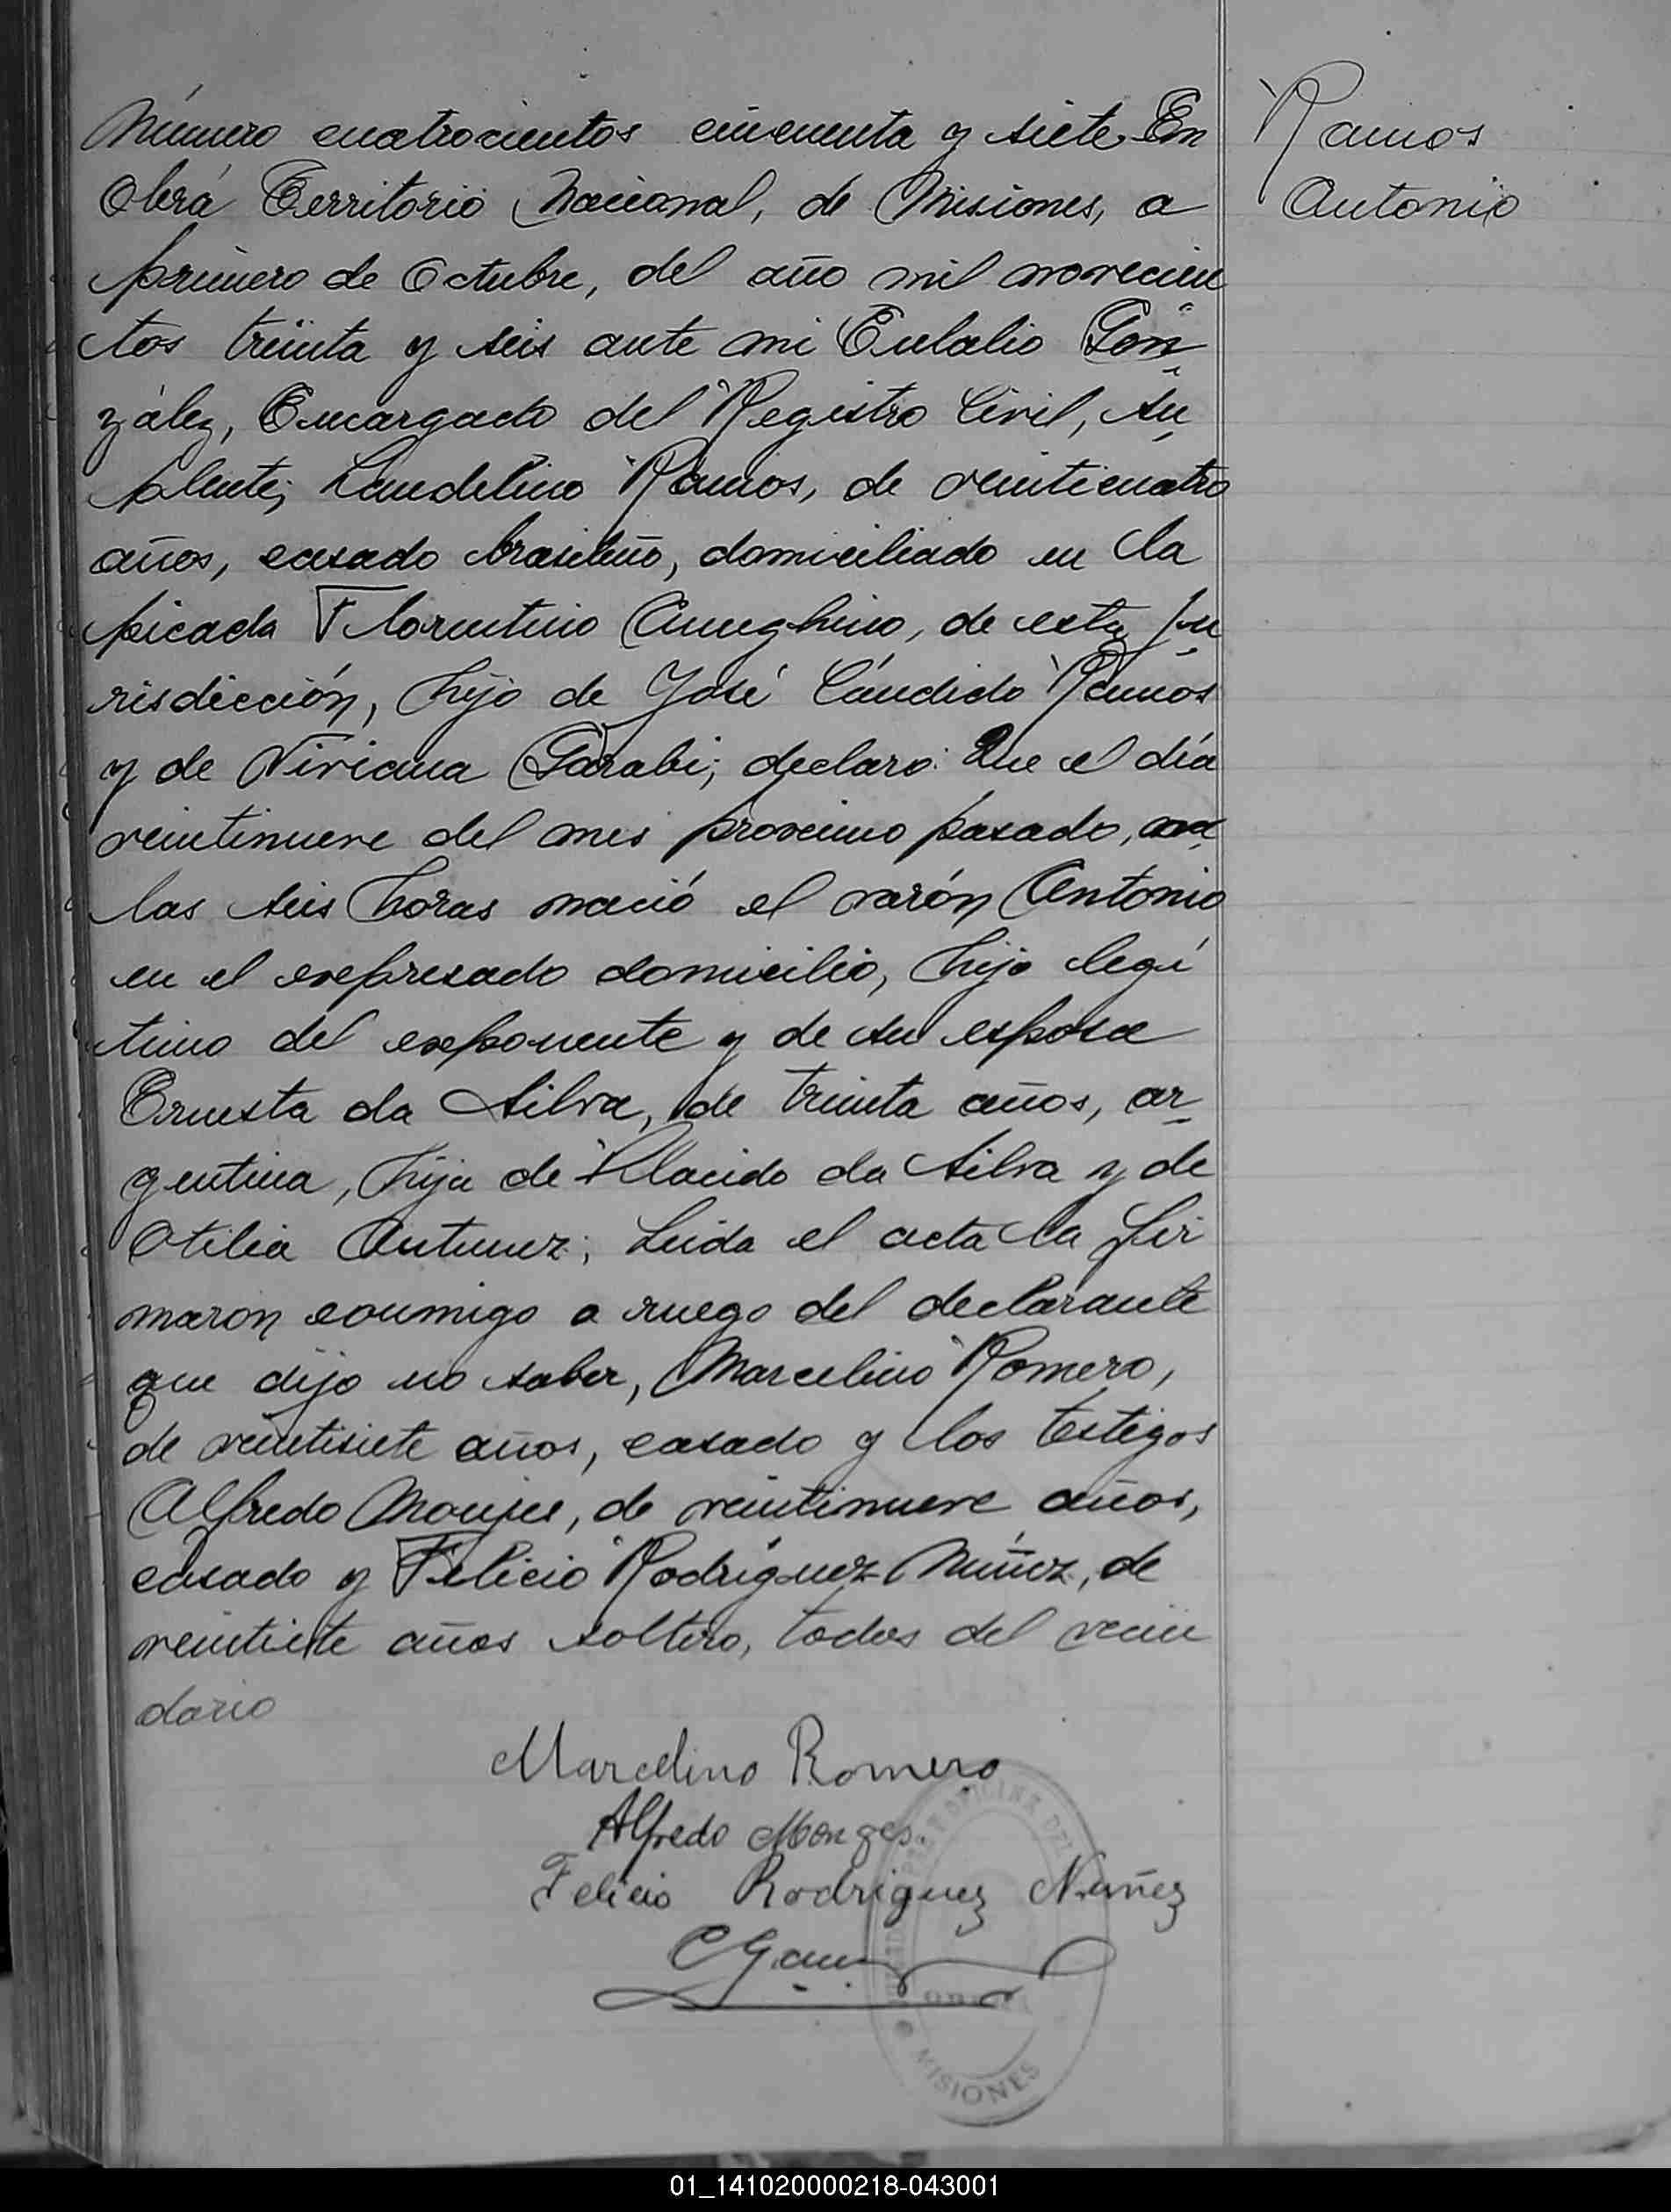 Número cuatrocientos cincuenta y siete En
Oberá Territorio Nacional, de Misiones, a
primero de Octubre, del año mil novecien
tos treinta y seis ante mi Eulalio Gon
zález, Encargado del Registro Civil, Su
plente; Laudelino Ramos, de veinticuatro
años, casado brasileño, domiciliado en la
picada Florentino Ameghino, de esta ju
risdicción, hijo de José Cándido Ramos
y de Viviana Garabi; declaro: Que el día
veintinueve del mes proximo pasado, a
las seis horas nació el varón Antonio
en el expresado domicilio, hijo legí
timo del exponente y de su esposa
Ernesta da Silva, de treinta años, ar-
gentina, hija de Placido da Silva y de
Otilia Antunez; Leida el acta la fir
maron conmigo a ruego del declarante
que dijo no saber, Marcelino Romero,
de veintisiete años, casado y los testigos
Alfredo Monjes, de veintinueve años,
casado y Felicio Rodriguez Núñez, de
años soltero, todos del vecin
dario
Marcelino Romero
Alfredo Monges.
Felicio Rodriguez Nuñez
Ramos
Antonio
OFICINA DEL
MISIONES
01_141020000218-043001